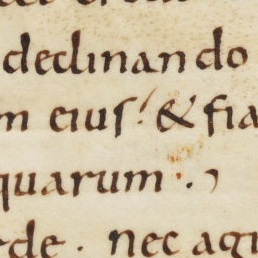 declinando
m eiuſ & fia
quarum
rde · nec agr